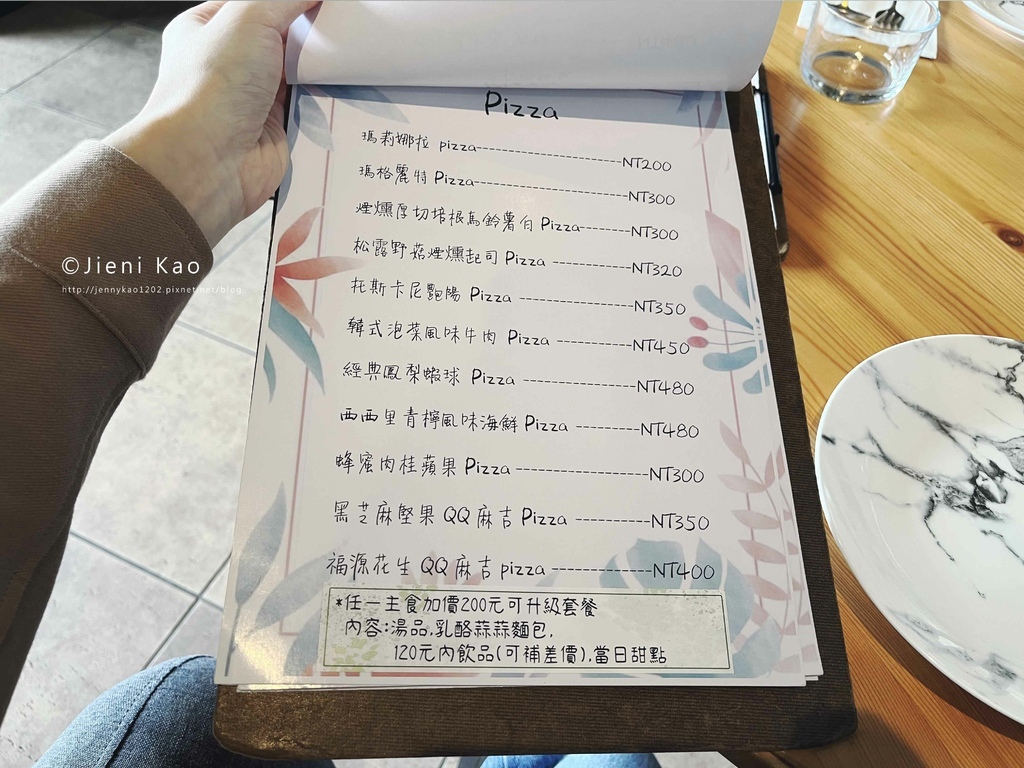 Pizza
瑪莉娜拉 pizza----------------------NT200
瑪格麗特 Pizza----------------------NT300
煙燻厚切培根馬鈴薯白 Pizza-------NT300
松露野菇煙燻起司 Pizza ------------NT320
托斯卡尼艷陽 Pizza ----------------NT350
韓式泡菜風味牛肉 Pizza ----------NT450
經典鳳梨蝦球 Pizza ---------------NT480
西西里青檸風味海鮮 Pizza ---------NT480
蜂蜜肉桂蘋果 Pizza----------------NT300
黑芝麻堅果 QQ 麻吉 Pizza ---------NT350
福源花生 QQ 麻吉 pizza ------------NT400
*任一主食加價200元可升級套餐
內容:湯品.乳酪蒜蒜麵包.
120元內飲品(可補差價).當日甜點
©Jieni Kao
http://jennykao1202.pixnet.net/blog